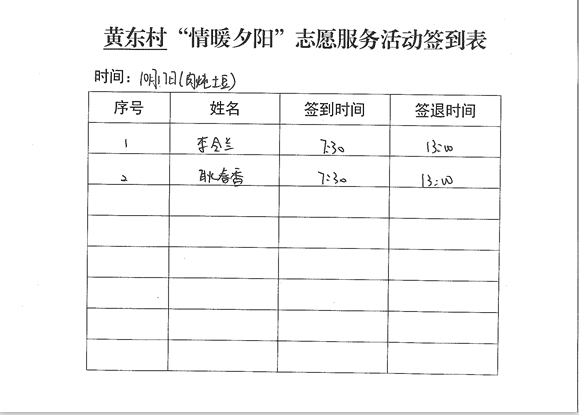 黄东村“情暖夕阳”志愿服务活动签到表
时间：10月17日(肉炖土豆)
序号 姓名 签到时间 签退时间
1 李全兰 7:30 13:00
2 耿春香 7:30 13:00